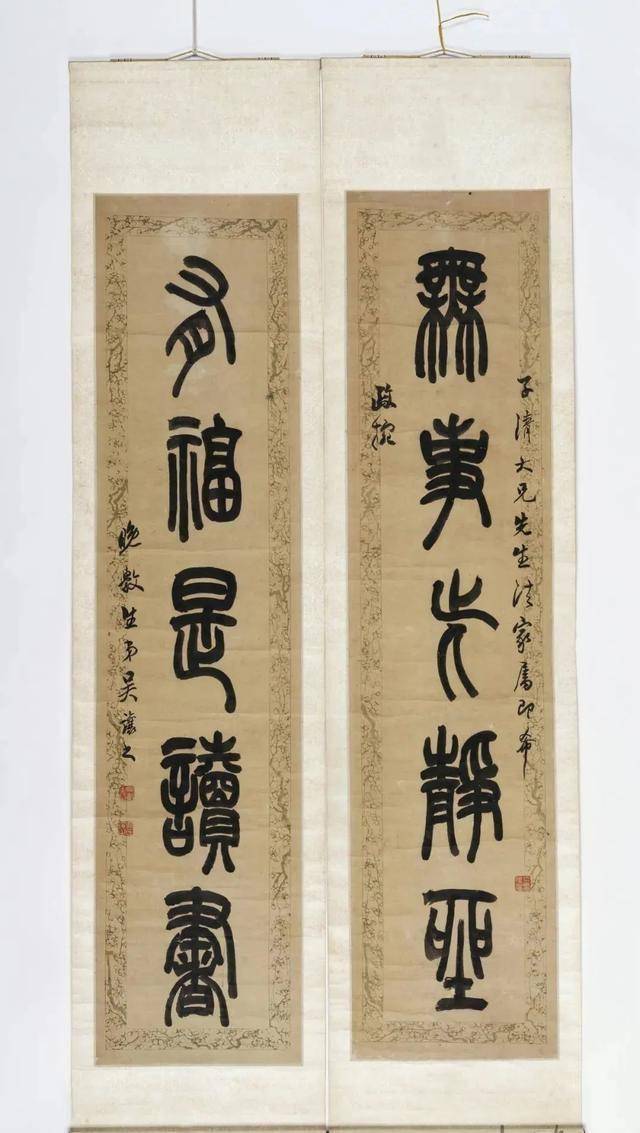 子清大兄先生法家屬即希
無事此靜坐
政
有福是讀書
晚 生弟吳讓之